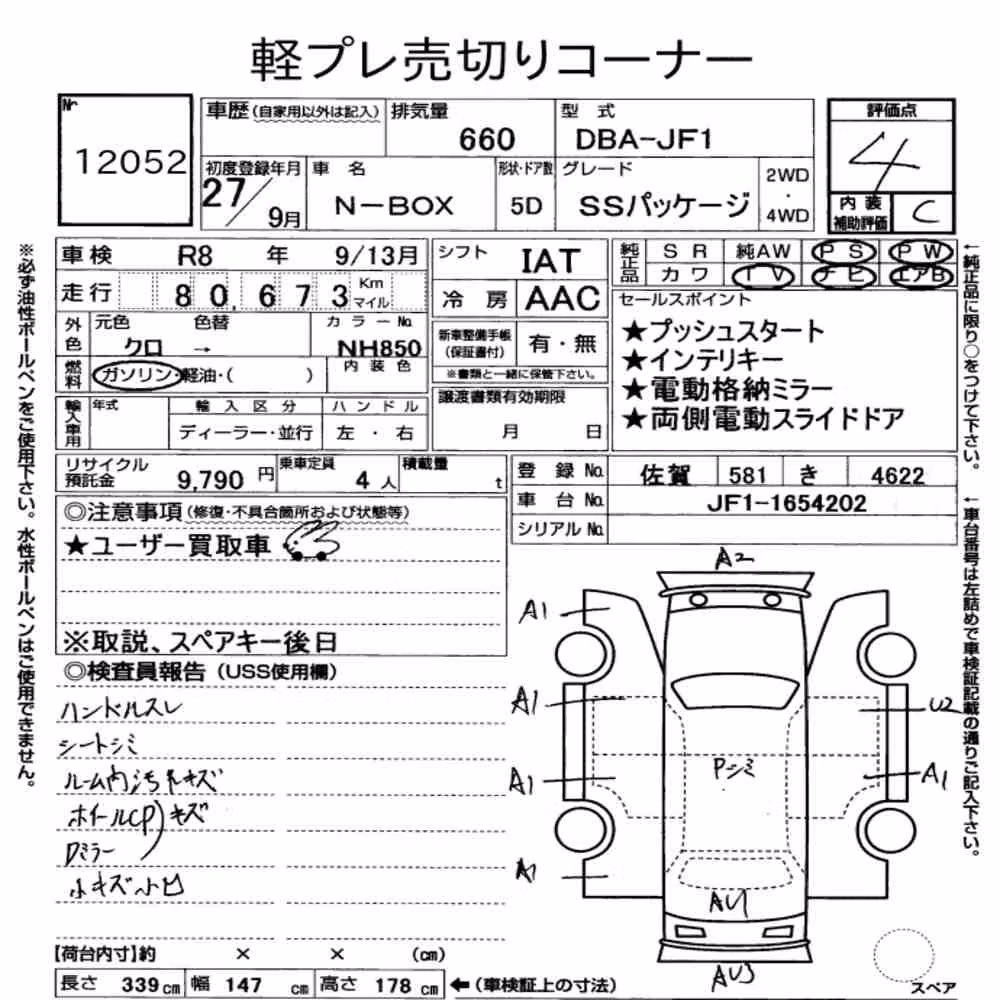 軽プレ売切りコーナー
Nr
12052
車歴(自家用以外は記入) 排気量 660 型式 DBA-JF1
評価点 4
初度登録年月 27/9月 車名 N-BOX 形状・ドア数 5D グレード SSパッケージ 2WD・4WD
内装補助評価 C
車検 R8 年 9/13月
走行 80,673 Km マイル
外色 元色 クロ → 色替 カラーNo. NH850
燃料 ガソリン・軽油・( ) 内装色
輸入車用 年式 輸入区分 ディーラー・並行 ハンドル 左・右
シフト IAT
冷房 AAC
新車整備手帳(保証書付) 有・無
※書類と一緒に保管下さい。
譲渡書類有効期限
月 日
純正品 SR 純AW PS PW
カワ TV ナビ エアB
セールスポイント
★プッシュスタート
★インテリキー
★電動格納ミラー
★両側電動スライドドア
リサイクル預託金 9,790 円 乗車定員 4 人 積載量 t
登録No. 佐賀 581 き 4622
車台No. JF1-1654202
シリアルNo.
◎注意事項(修復・不具合箇所および状態等)
★ユーザー買取車
※取説、スペアキー後日
◎検査員報告(USS使用欄)
ハンドルスレ
シートシミ
ルーム内汚れキズ
ホイールCP)キズ
Dミラー
小キズ小凹
A2
A1
A1
U2
Pシミ
A1
A1
A1
AU1
AU3
スペア
【荷台内寸】約 × × (cm)
長さ 339 cm 幅 147 cm 高さ 178 cm ←(車検証上の寸法)
※必ず油性ボールペンをご使用下さい。水性ボールペンはご使用できません。
←純正品に限り○をつけて下さい。
←車台番号は左詰めで車検証記載の通りご記入下さい。